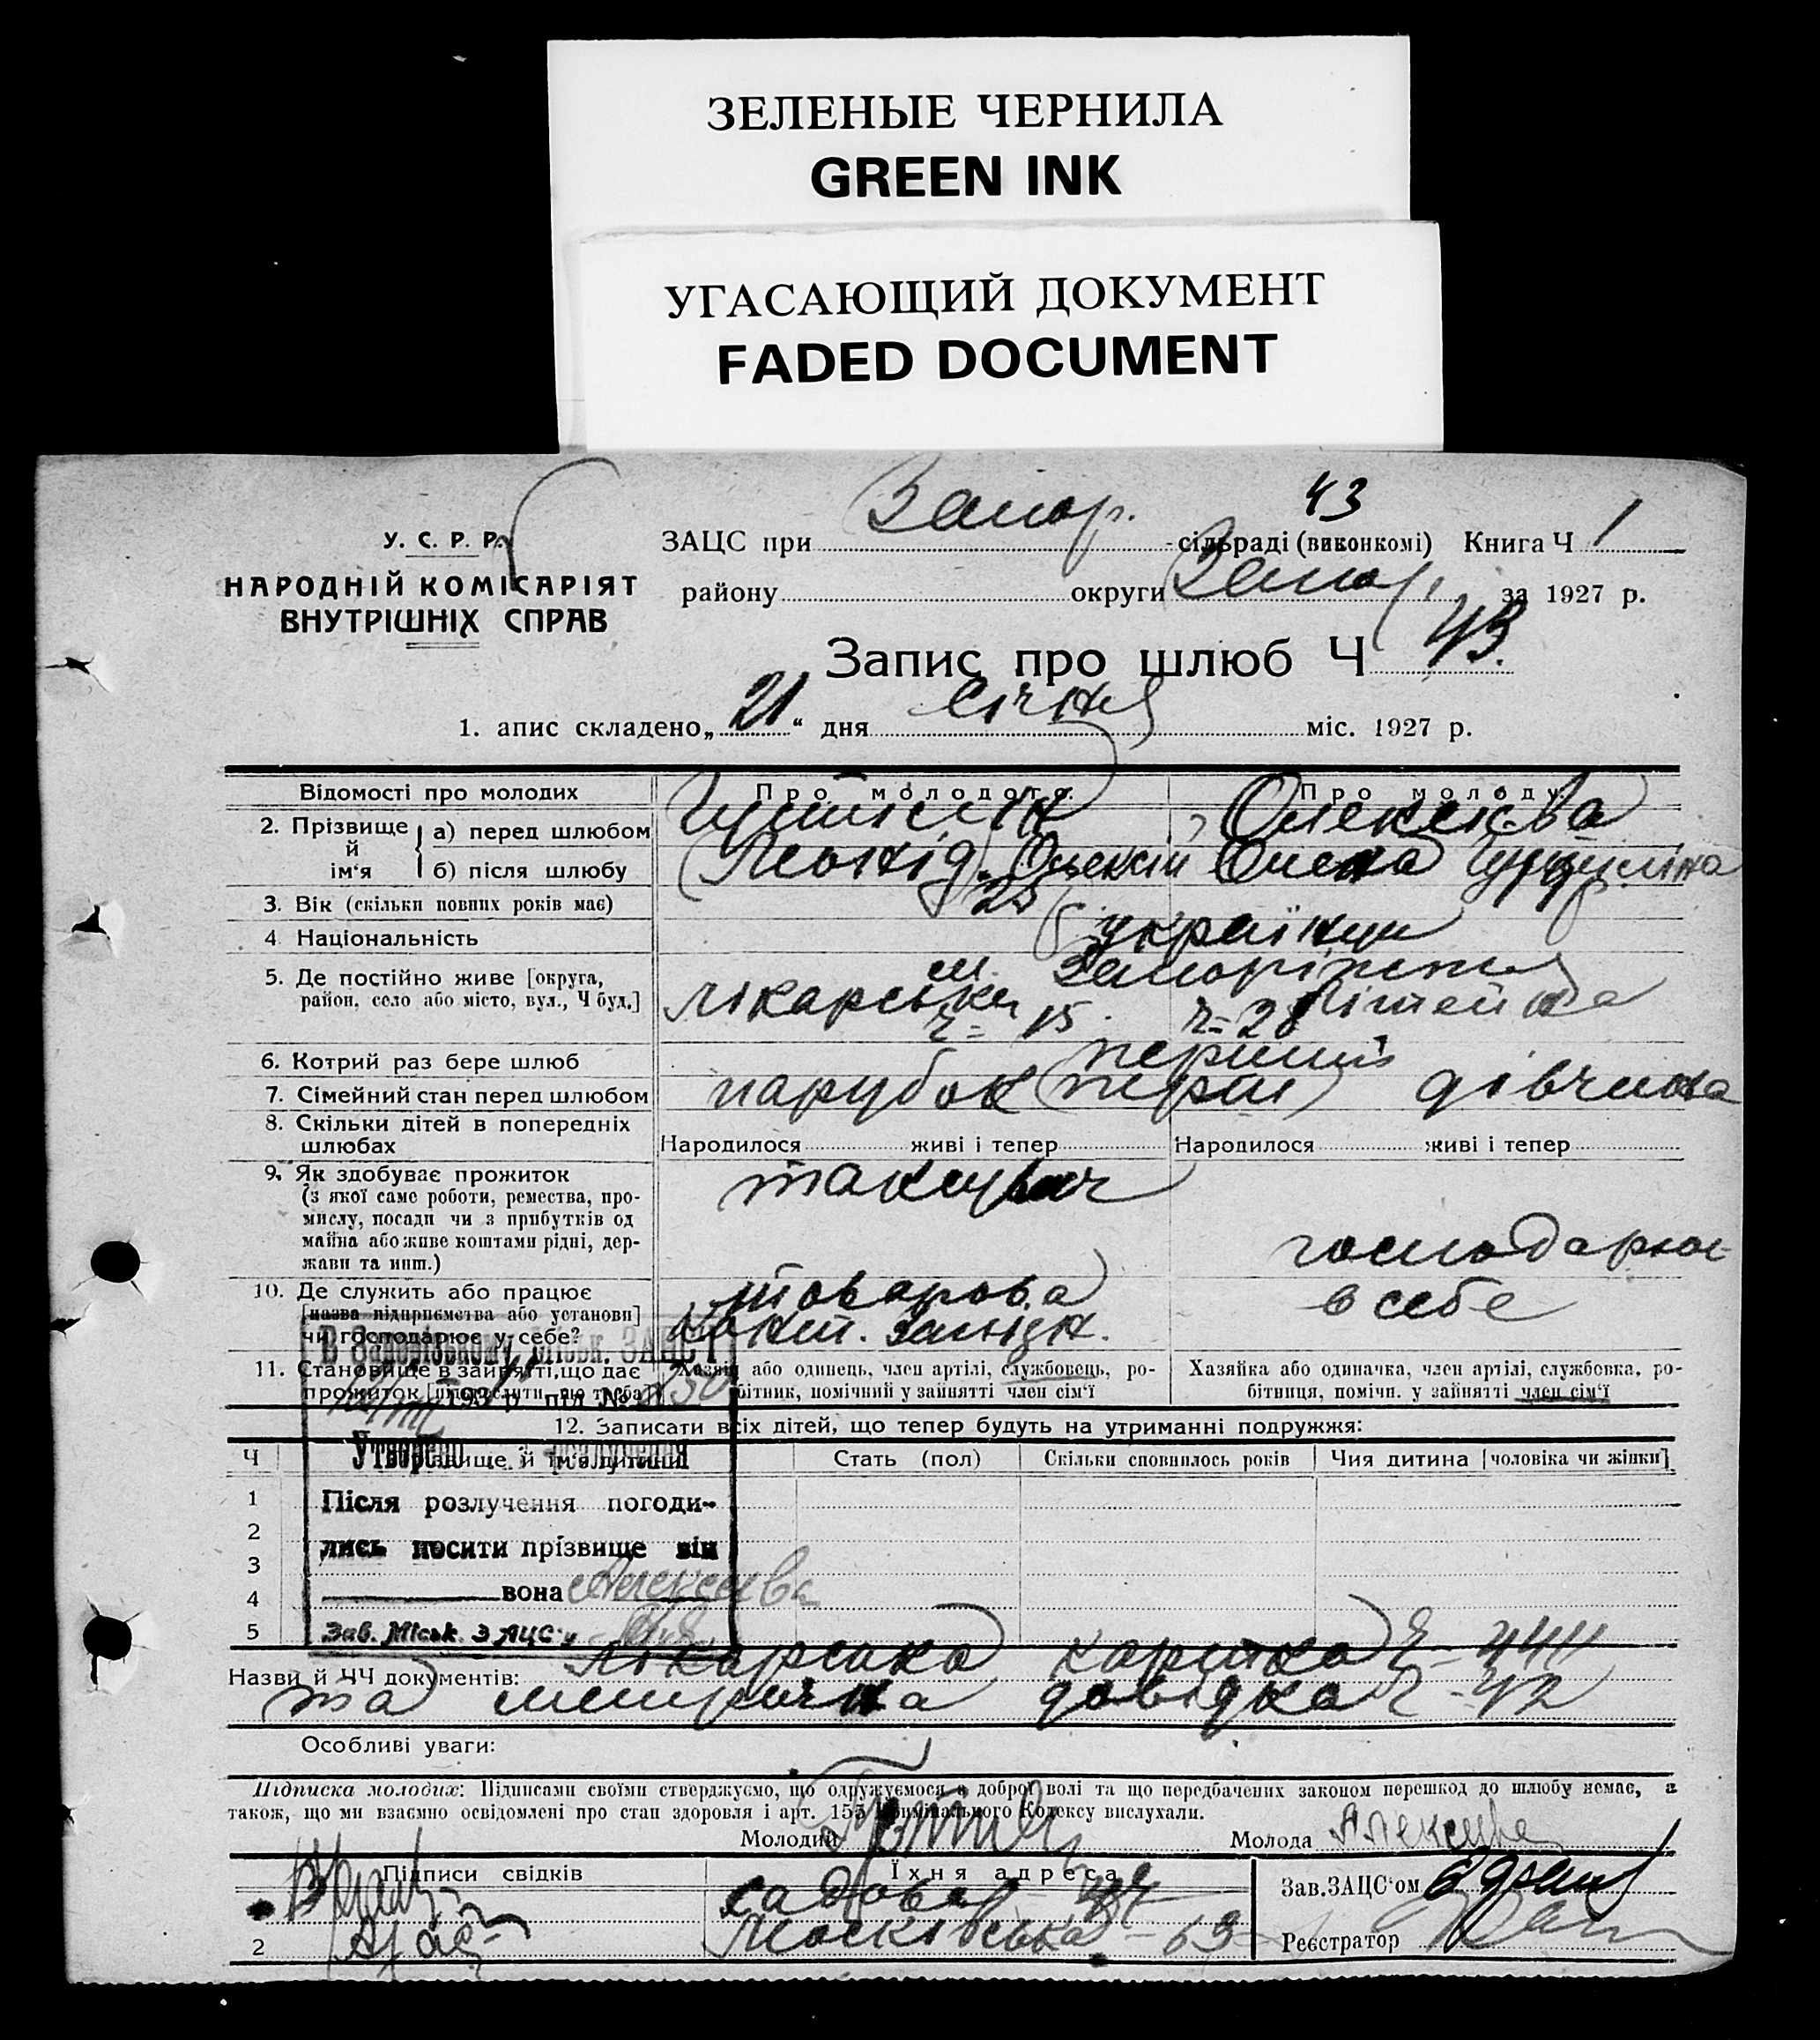 ЗЕЛЕНЫЕ ЧЕРНИЛА
GREEN INK
УГАСАЮЩИЙ ДОКУМЕНТ
FADED DOCUMENT
43
У. С. Р. Р.
НАРОДНІЙ КОМІСАРІЯТ
ВНУТРІШНІХ СПРАВ
ЗАЦС при Запор. сільраді (виконкомі) Книга Ч 1
району округи Запор. за 1927 р.
Запис про шлюб Ч 43.
1. апис складено „21“ дня Січня міс. 1927 р.
Відомості про молодих Про молодого. Про молоду.
2. Прізвище й ім'я { а) перед шлюбом Олексієва
б) після шлюбу Леонід. Олексій Олена
3. Вік (скільки повних років має) 25
4. Національність українці
5. Де постійно живе [округа, район, село або місто, вул., Ч буд.] м. Запоріжжя
Лікарська ч= 15. ч= 28
6. Котрий раз бере шлюб перший
7. Сімейний стан перед шлюбом парубок (перш) дівчина
8. Скільки дітей в попередніх шлюбах Народилося живі і тепер Народилося живі і тепер
9. Як здобуває прожиток
(з якої саме роботи, ремества, промислу, посади чи з прибутків од майна або живе коштами рідні, держави та инш.)
10. Де служить або працює
[назва підприємства або установи]
чи господарює у себе?
товарова
господарює
в себе
11. Становище в зайнятті, що дає
прожиток [підкреслити, що треба]
Хазяїн або одинець, член артілі, службовець, робітник, помічний у зайнятті член сім'ї
Хазяйка або одиначка, член артілі, службовка, робітниця, помічн. у зайнятті член сім'ї
В Запорізькому Міськ. ЗАЦС'і
193 р. під №
Утворено розлучення
Після розлучення погоди-
лись носити прізвище він
вона Алексеева
Зав. Міськ. ЗАЦС'у
12. Записати всіх дітей, що тепер будуть на утриманні подружжя:
Ч Прізвище й ім'я дитини Стать (пол) Скільки сповнилось років Чия дитина [чоловіка чи жінки]
1
2
3
4
5
Назви й ЧЧ документів: Лікарська картка Ч - 444
та метрична довідка Ч - 42
Особливі уваги:
Підписка молодих: Підписами своїми стверджуємо, що одружуємося з доброї волі та що передбачених законом перешкод до шлюбу немає, а
також, що ми взаємно освідомлені про стан здоровля і арт. 155 Кримінального Кодексу вислухали.
Молодий Молода Алексеева
Підписи свідків Їхня адреса
Садова
2 Московська - 63
Зав. ЗАЦС'ом
Реєстратор